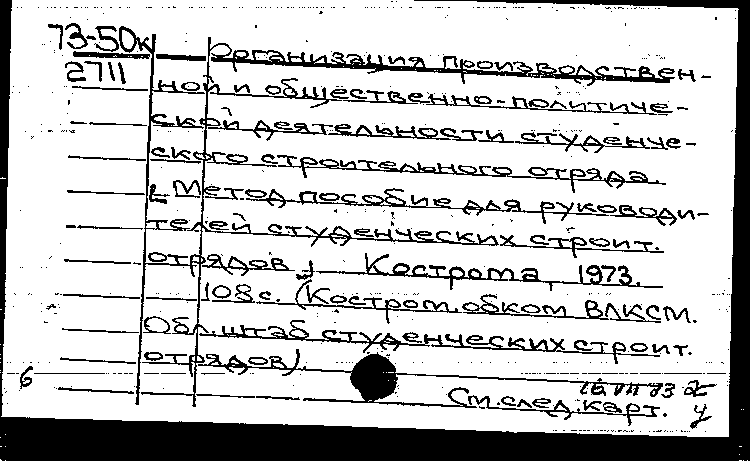 73-50к
2711
Организация производствен-
ной и общественно-политиче-
ской деятельности студенче-
ского строительного отряда.
[Метод. пособие для руководи-
телей студенческих строит.
отрядов]. Кострома, 1973.
108 с. (Костром. обком ВЛКСМ.
Обл. штаб студенческих строит.
отрядов).
6
Ст. след. карт.